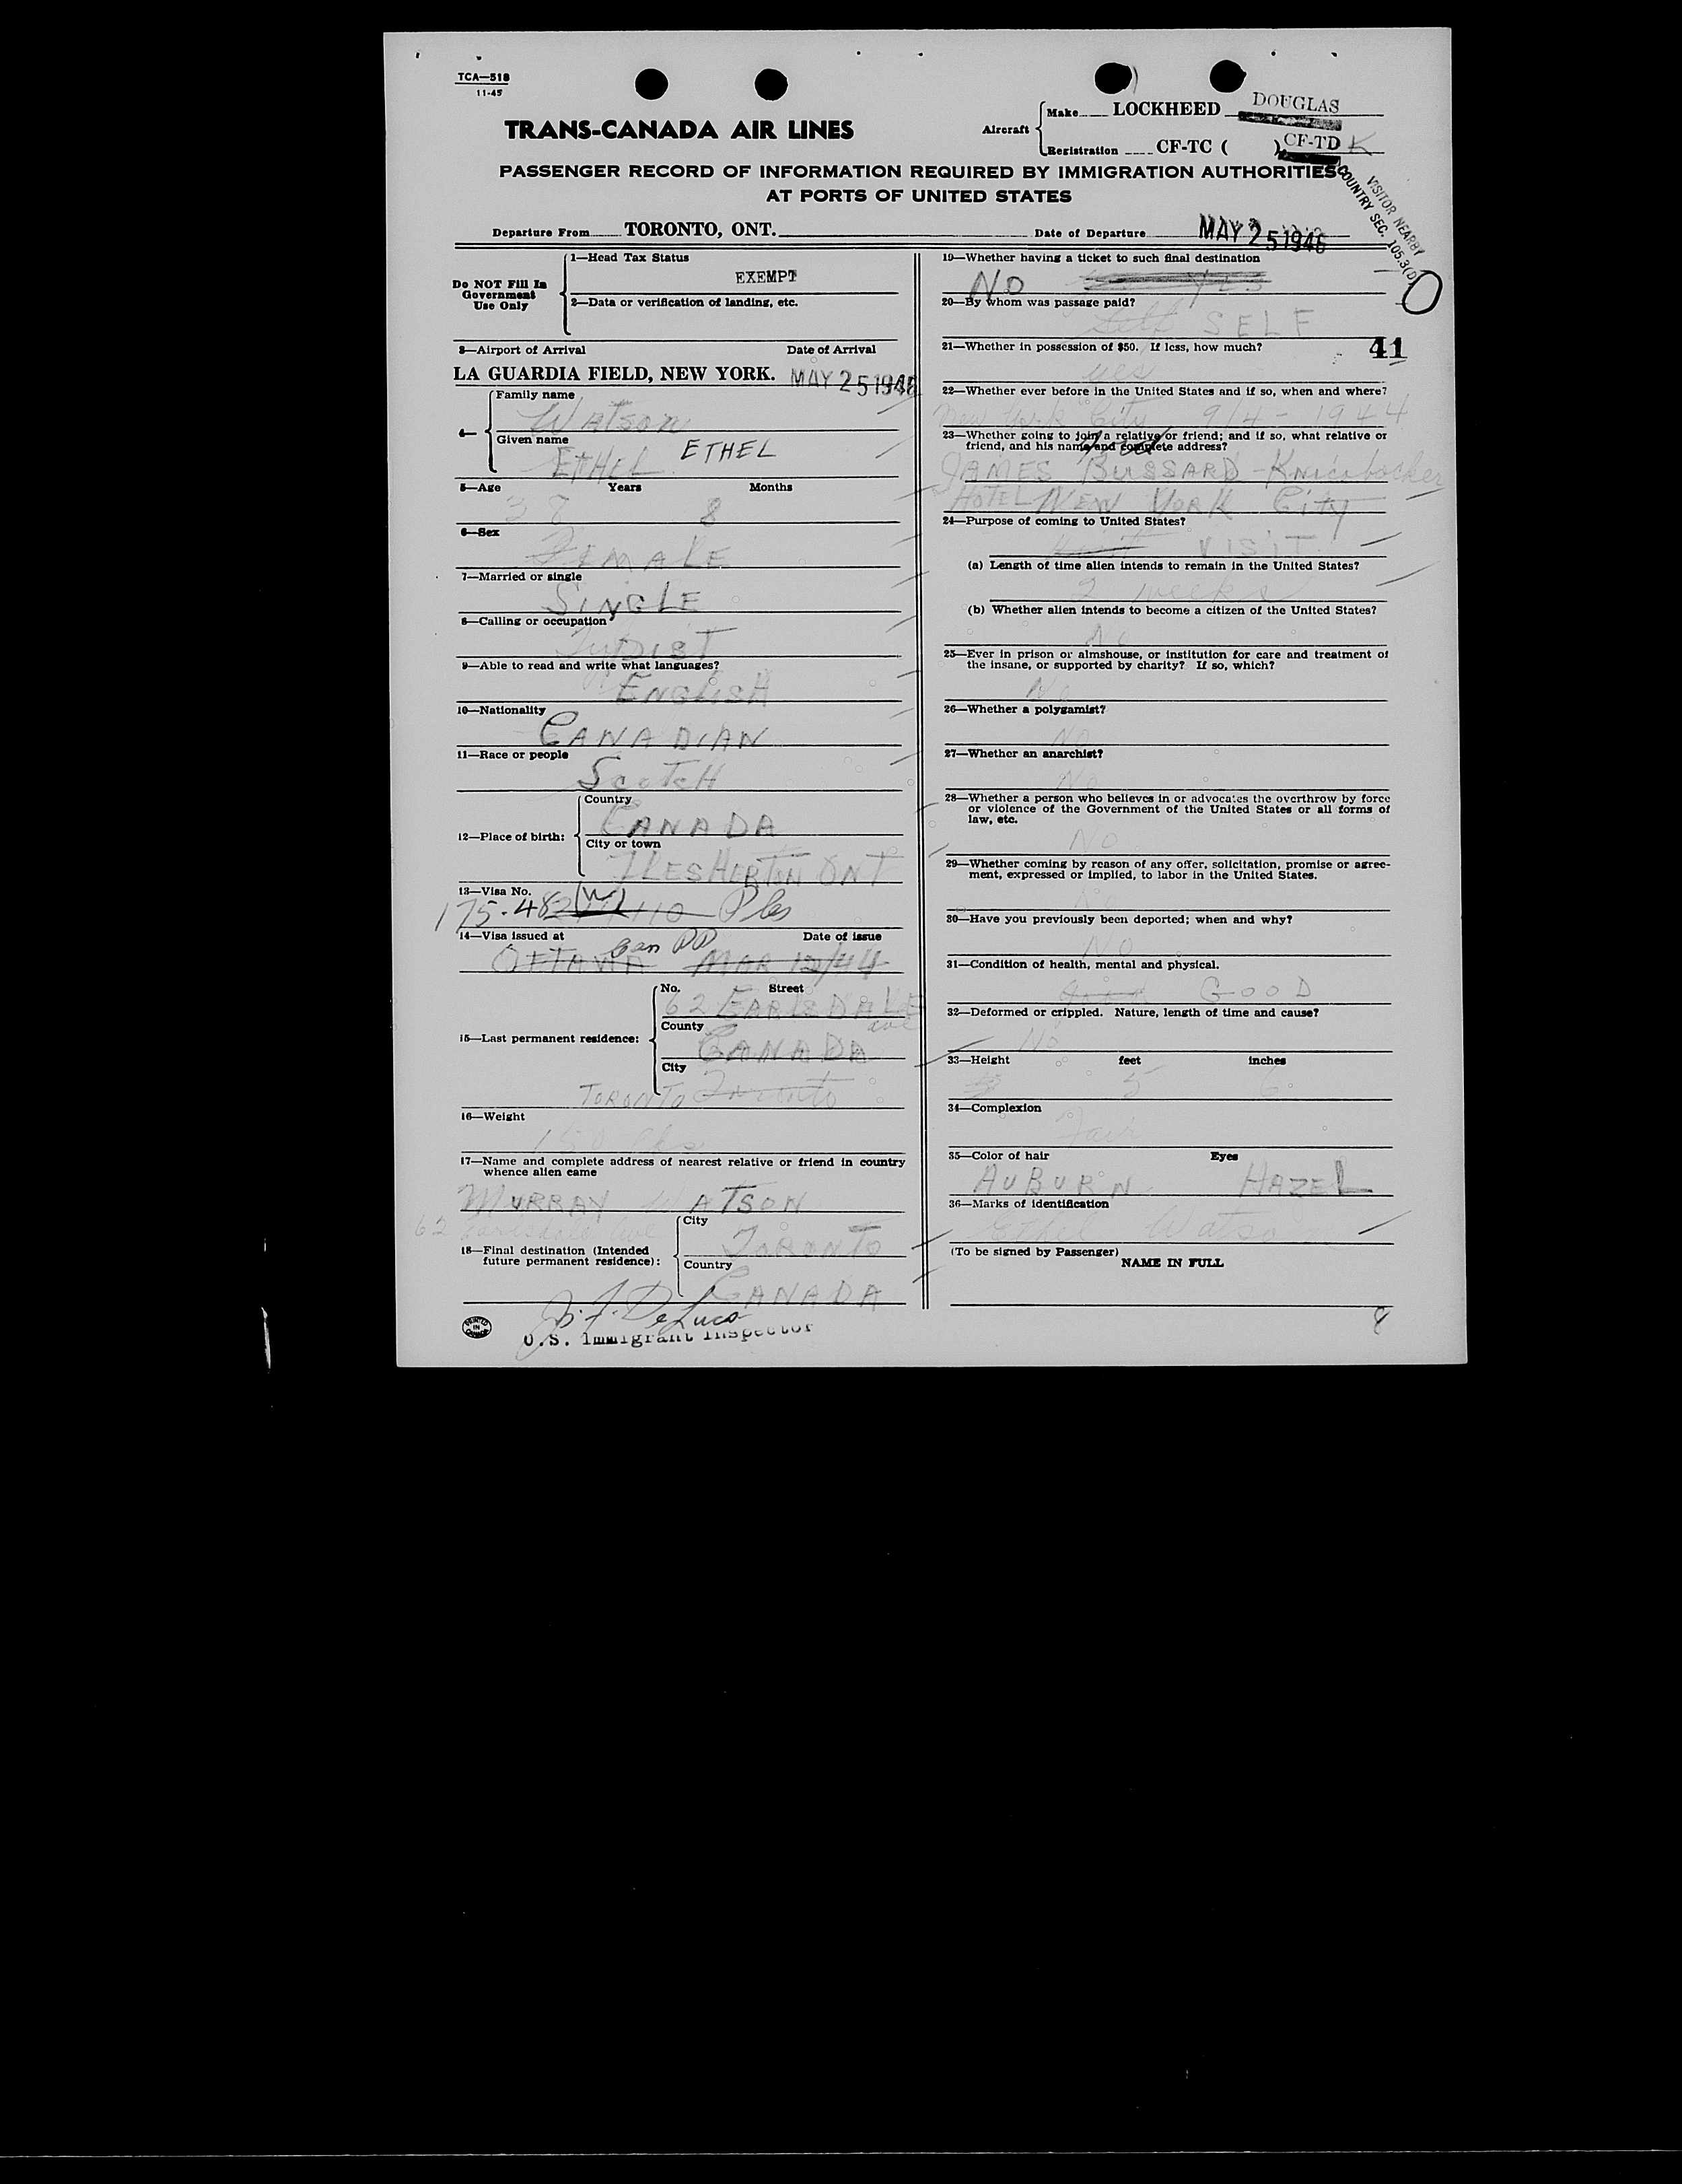 TCA—518
11-45
TRANS-CANADA AIR LINES
Aircraft
Make LOCKHEED DOUGLAS
Registration CF-TC ( ) CF-TD K
PASSENGER RECORD OF INFORMATION REQUIRED BY IMMIGRATION AUTHORITIES
AT PORTS OF UNITED STATES
VISITOR NEARBY
COUNTRY SEC. 105.3(D)
Departure From TORONTO, ONT. Date of Departure MAY 25 1946
Do NOT Fill In
Government
Use Only
1—Head Tax Status
EXEMPT
2—Data or verification of landing, etc.
3—Airport of Arrival Date of Arrival
LA GUARDIA FIELD, NEW YORK. MAY 25 1946
4—
Family name
WATSON
Given name
ETHEL ETHEL
5—Age Years Months
8
6—Sex
FEMALE
7—Married or single
SINGLE
8—Calling or occupation
TYPIST
9—Able to read and write what languages?
ENGLISH
10—Nationality
CANADIAN
11—Race or people
SCOTCH
12—Place of birth:
Country
CANADA
City or town
FLESHERTON ONT
13—Visa No.
175-482 (W) 110
14—Visa issued at Date of issue
Can PP
OTTAWA MAR 12/44
15—Last permanent residence:
No. Street
62 EARLSDALE
ave
County
CANADA
City
TORONTO Toronto
16—Weight
17—Name and complete address of nearest relative or friend in country
whence alien came
MURRAY WATSON
62 Earlsdale Ave
18—Final destination (Intended
future permanent residence):
City
TORONTO
Country
CANADA
J. J. DeLuca
U.S. Immigrant Inspector
PRINTED IN CANADA
19—Whether having a ticket to such final destination
NO YES
20—By whom was passage paid?
Self SELF
21—Whether in possession of $50. If less, how much?
41
yes
22—Whether ever before in the United States and if so, when and where?
New York City 9/4-1944
23—Whether going to join a relative or friend; and if so, what relative or
friend, and his name and complete address?
JAMES BUSSARD - Knicobocker
HOTEL NEW YORK City
24—Purpose of coming to United States?
Visit VISIT
(a) Length of time alien intends to remain in the United States?
2 weeks
(b) Whether alien intends to become a citizen of the United States?
No
25—Ever in prison or almshouse, or institution for care and treatment of
the insane, or supported by charity? If so, which?
No
26—Whether a polygamist?
NO
27—Whether an anarchist?
NO
28—Whether a person who believes in or advocates the overthrow by force
or violence of the Government of the United States or all forms of
law, etc.
NO
29—Whether coming by reason of any offer, solicitation, promise or agree-
ment, expressed or implied, to labor in the United States.
No
30—Have you previously been deported; when and why?
NO
31—Condition of health, mental and physical.
Good GOOD
32—Deformed or crippled. Nature, length of time and cause?
No
33—Height feet inches
5 6
34—Complexion
Fair
35—Color of hair Eyes
AUBURN HAZEL
36—Marks of identification
Ethel Watson
(To be signed by Passenger)
NAME IN FULL